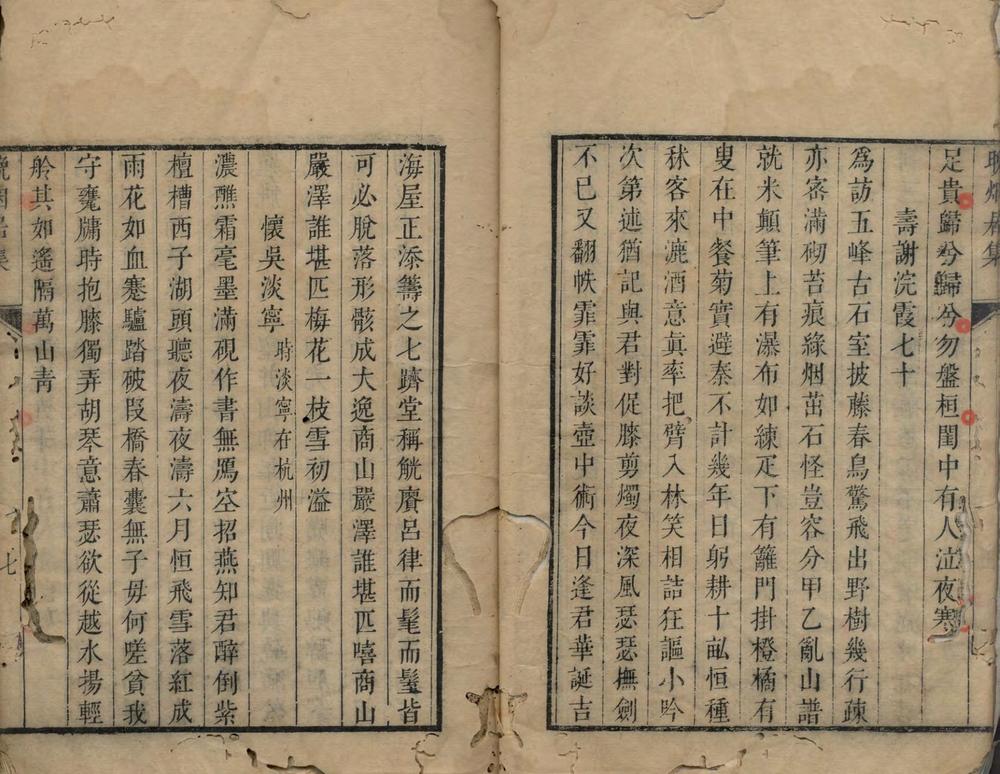 足貴歸兮歸兮勿盤桓閨中有人泣夜寒
壽謝浣霞七十
為訪五峰古石室披藤春鳥驚飛出野樹幾行疎
亦密滿砌苔痕綠烟茁石怪豈容分甲乙亂山譜
就米顛筆上有瀑布如練疋下有籬門掛橙橘有
叟在中餐菊實避秦不計幾年日躬耕十畝恒種
秫客來漉酒意真率把臂入林笑相詰狂謳小吟
次第述猶記與君對促膝剪燭夜深風瑟瑟撫劍
不已又翻帙霏霏好談壺中術今日逢君華誕吉
海屋正添籌之七躋堂稱觥賡呂律而髦而髽皆
可必脫落形骸成大逸商山嚴澤誰堪匹嘻商山
嚴澤誰堪匹梅花一枝雪初溢
懷吳淡寧 時淡寧在杭州
濃醮霜毫墨滿硯作書無鴈空招燕知君醉倒紫
檀槽西子湖頭聽夜濤夜濤六月恒飛雪落紅成
雨花如血蹇驢踏破段橋春囊無子毋何嗟貧我
守甕牖時抱膝獨弄胡琴意蕭瑟欲從越水揚輕
舲其如遙隔萬山青
七